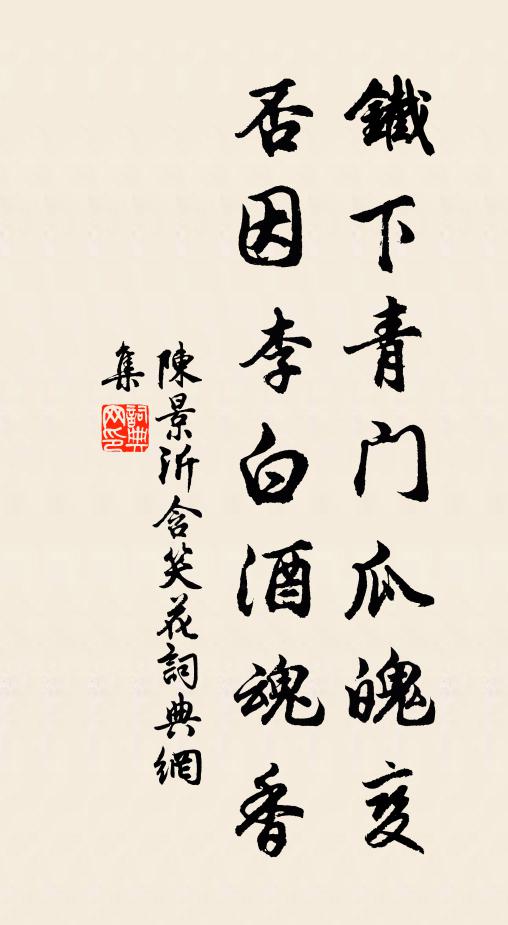 鐵下青门瓜魄变
否因李白酒魂香
陳景沂含笑花詞典網
集
詞典
网印